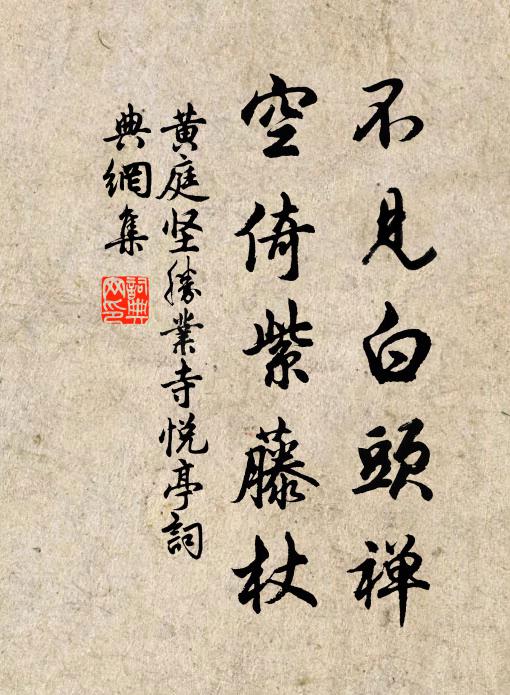 不見白頭禅
空倚紫藤杖
黄庭坚勝業寺悦亭詞
典網集
詞典
网印